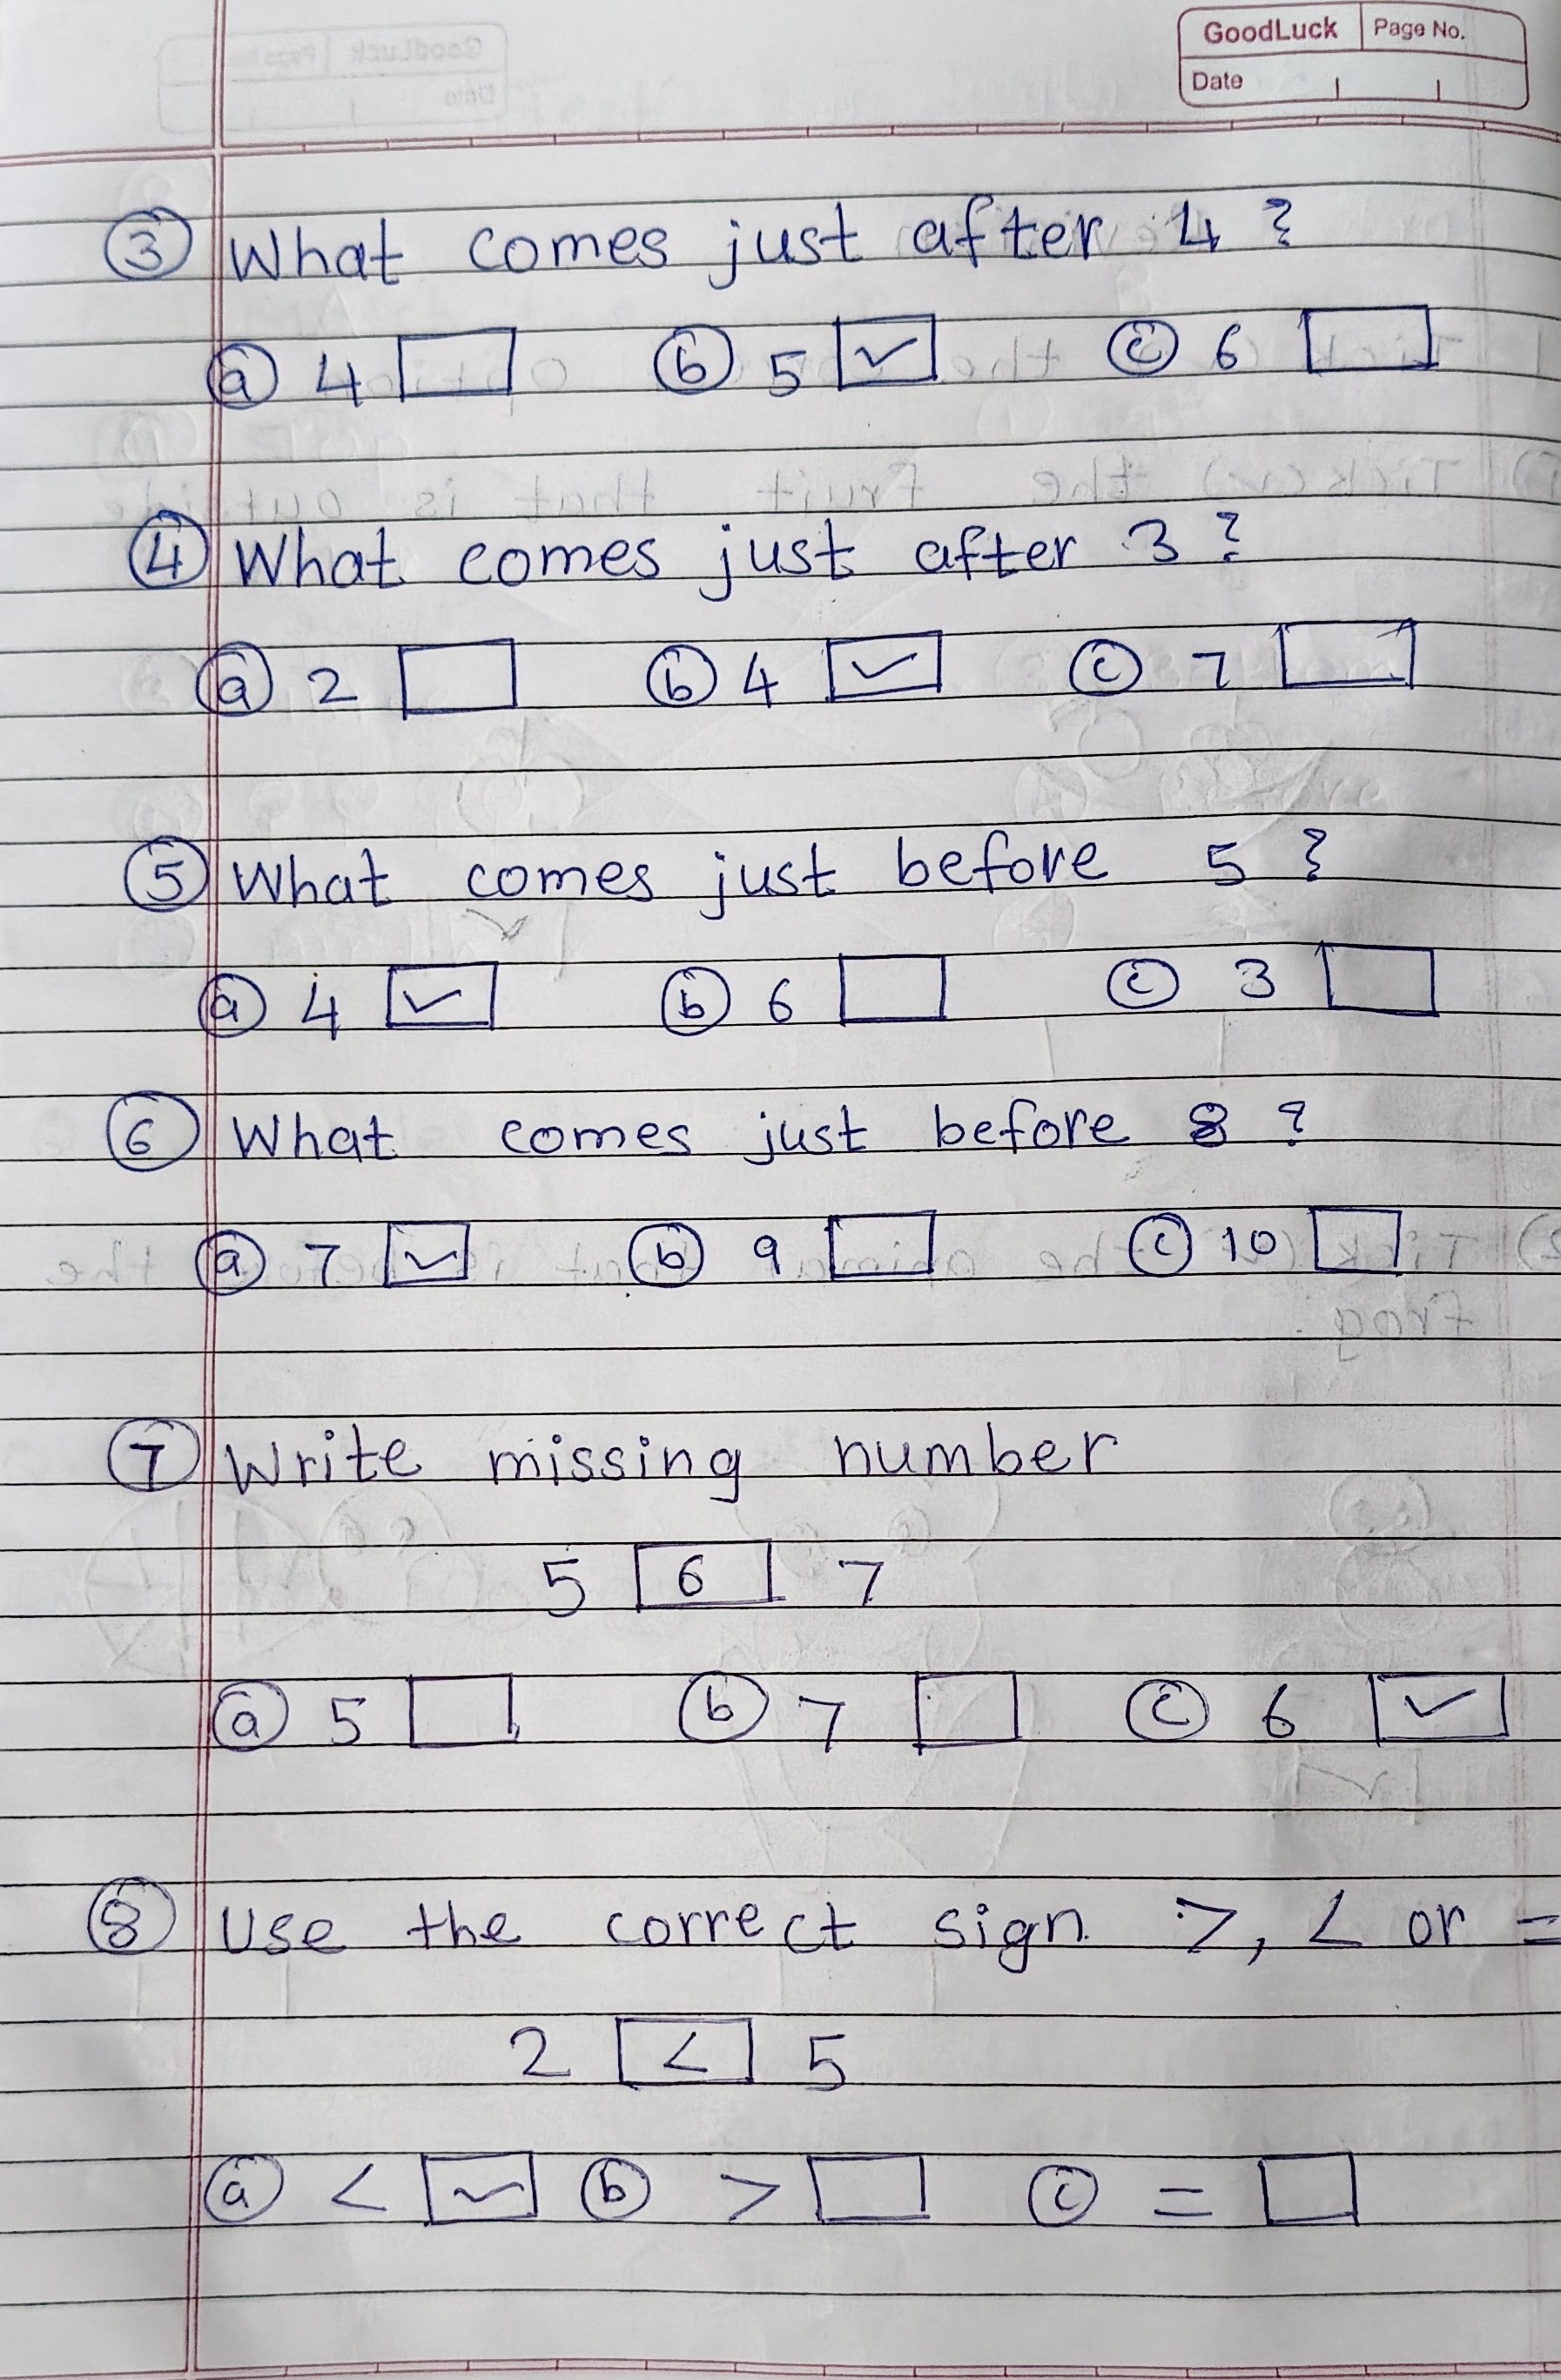 GoodLuck Page No.
Date
③ What comes just after 4 ?
ⓐ 4 ⓑ 5 ✓ ⓒ 6
④ What comes just after 3 ?
ⓐ 2 ⓑ 4 ✓ ⓒ 7
⑤ What comes just before 5 ?
ⓐ 4 ✓ ⓑ 6 ⓒ 3
⑥ What comes just before 8 ?
ⓐ 7 ✓ ⓑ 9 ⓒ 10
⑦ Write missing number
5 6 7
ⓐ 5 ⓑ 7 ⓒ 6 ✓
⑧ Use the correct sign >, < or =
2 < 5
ⓐ < ✓ ⓑ > ⓒ =